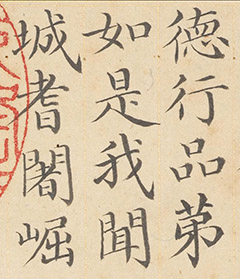 德行品第
如是我聞
城耆闍崛